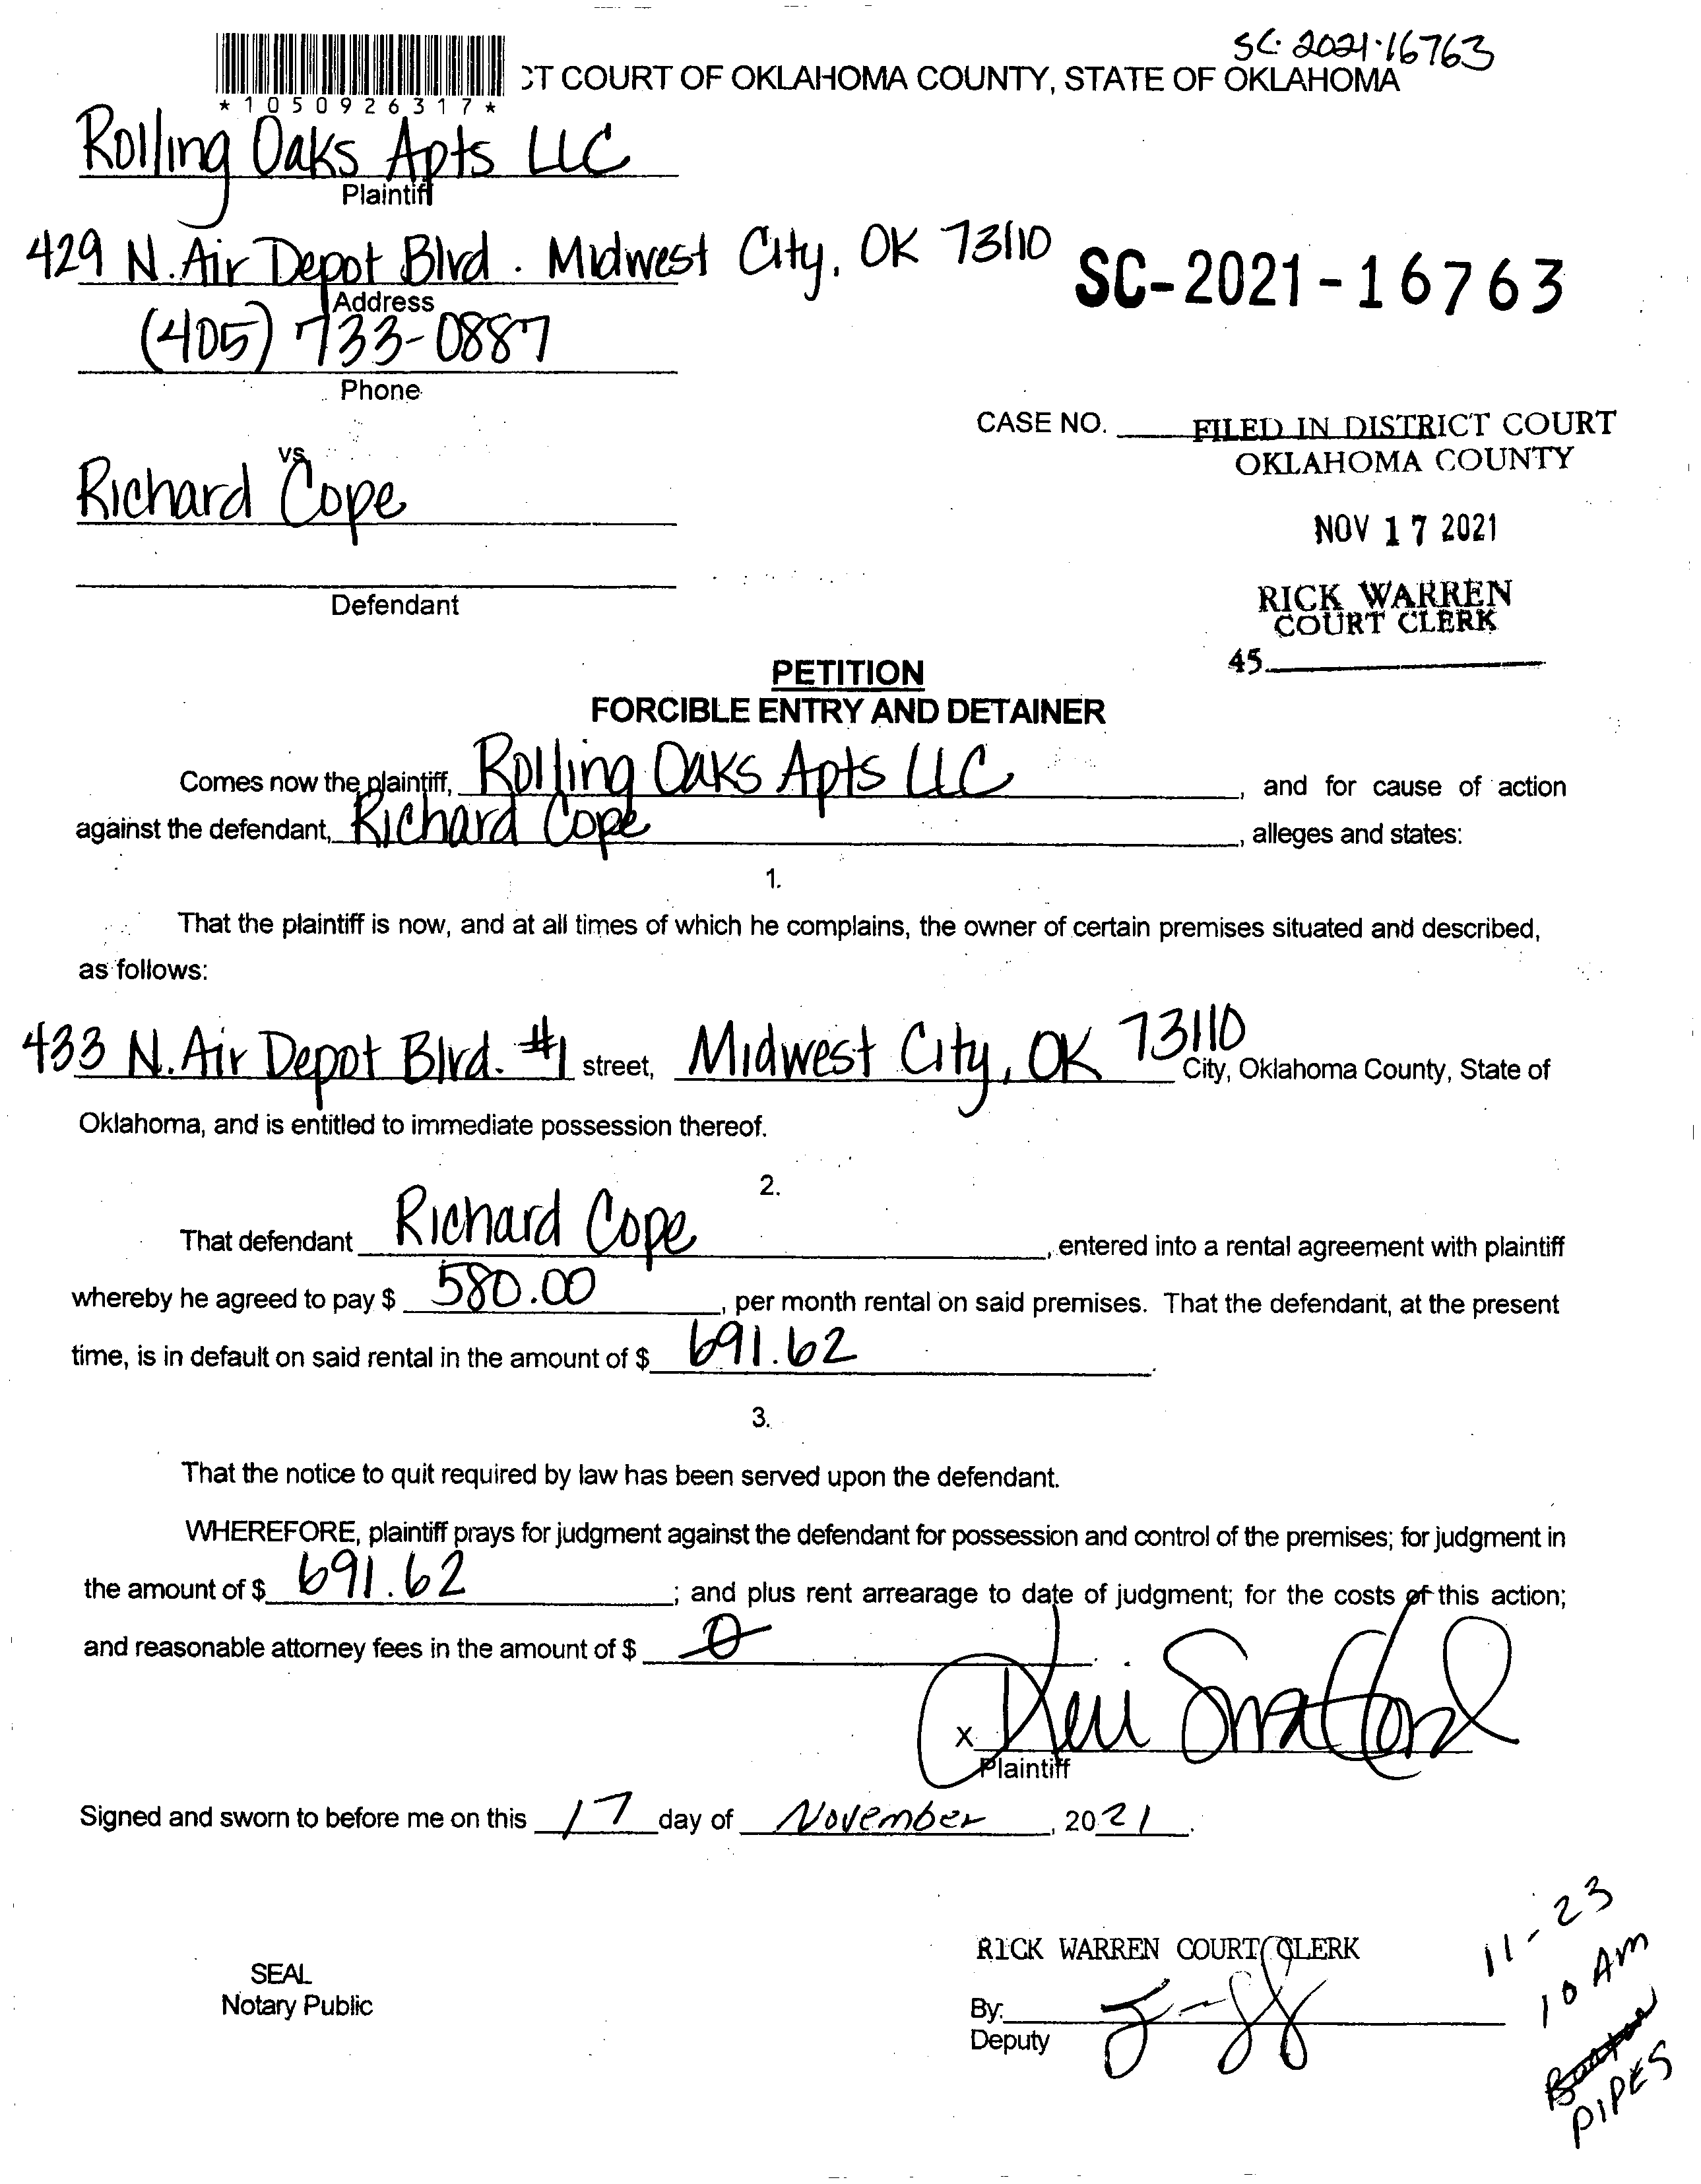 SC-2021-16763
CT COURT OF OKLAHOMA COUNTY, STATE OF OKLAHOMA
*1050926317*
Rolling Oaks Apts LLC
Plaintiff
429 N. Air Depot Blvd. Midwest City, OK 73110
SC-2021-16763
Address
(405) 733-0887
Phone
CASE NO.
FILED IN DISTRICT COURT
OKLAHOMA COUNTY
vs.
Richard Cope
NOV 17 2021
Defendant
RICK WARREN
COURT CLERK
45
PETITION
FORCIBLE ENTRY AND DETAINER
Comes now the plaintiff, Rolling Oaks Apts LLC, and for cause of action
against the defendant, Richard Cope, alleges and states:
1.
That the plaintiff is now, and at all times of which he complains, the owner of certain premises situated and described,
as follows:
433 N. Air Depot Blvd. #1 street, Midwest City, OK 73110 City, Oklahoma County, State of
Oklahoma, and is entitled to immediate possession thereof.
2.
That defendant Richard Cope, entered into a rental agreement with plaintiff
whereby he agreed to pay $ 580.00, per month rental on said premises. That the defendant, at the present
time, is in default on said rental in the amount of $ 691.62.
3.
That the notice to quit required by law has been served upon the defendant.
WHEREFORE, plaintiff prays for judgment against the defendant for possession and control of the premises; for judgment in
the amount of $ 691.62; and plus rent arrearage to date of judgment; for the costs of this action;
and reasonable attorney fees in the amount of $ 0.
X
Plaintiff
Signed and sworn to before me on this 17 day of November, 2021.
SEAL
Notary Public
RICK WARREN COURT CLERK
By:
Deputy
11-23
10 AM
PIPES